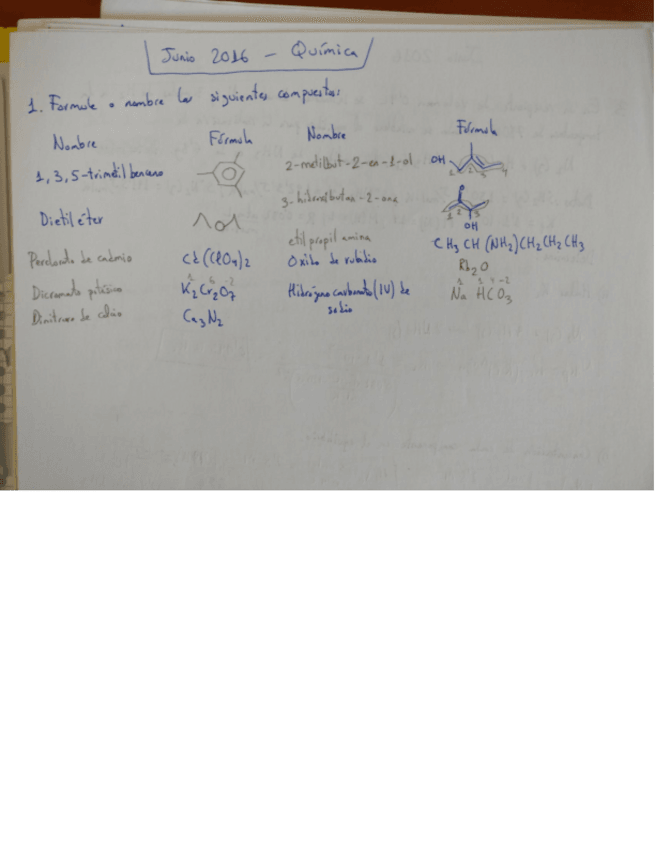 Junio 2016 - Química
1. Formule o nombre los siguientes compuestos:
Nombre Fórmula Nombre Fórmula
1,3,5-trimetilbenceno 2-metilbut-2-en-1-ol OH 1 2 3 4
Dietil éter O 3-hidroxibutan-2-ona 1 2 3 OH
etil propil amina CH3CH(NH2)CH2CH2CH3
Perclorato de cadmio Cd(ClO4)2 Oxido de rubidio Rb2O
Dicromato potásico K2Cr2O7 Hidrógeno carbonato (IV) de sodio NaHCO3
Dinitruro de calcio Ca3N2